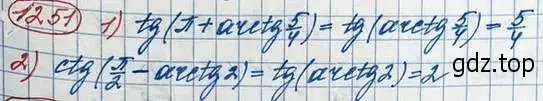 1251 1) tg(π + arctg 5/4) = tg(arctg 5/4) = 5/4
2) ctg(π/2 - arctg 2) = tg(arctg 2) = 2
gdz.top